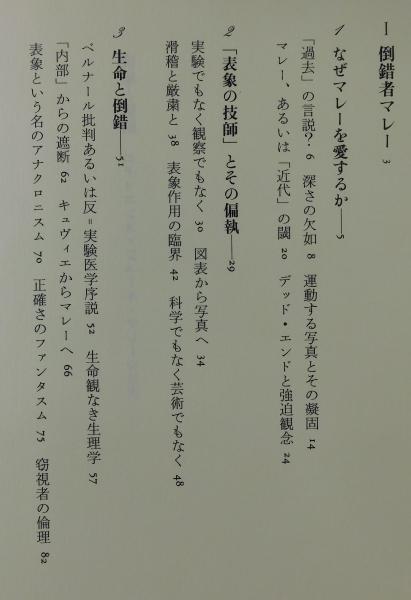 I 倒錯者マレー 3
1 なぜマレーを愛するか——5
「過去」の言説? 6 深さの欠如 8 運動する写真とその凝固 14
マレー、あるいは「近代」の閾 20 デッド・エンドと強迫観念 24
2 「表象の技師」とその偏執——29
実験でもなく観察でもなく 30 図表から写真へ 34
滑稽と厳粛と 38 表象作用の臨界 42 科学でもなく芸術でもなく 48
3 生命と倒錯——51
ベルナール批判あるいは反=実験医学序説 52 生命観なき生理学 57
「内部」からの遮断 62 キュヴィエからマレーへ 66
表象という名のアナクロニスム 70 正確さのファンタスム 75 窃視者の倫理 82